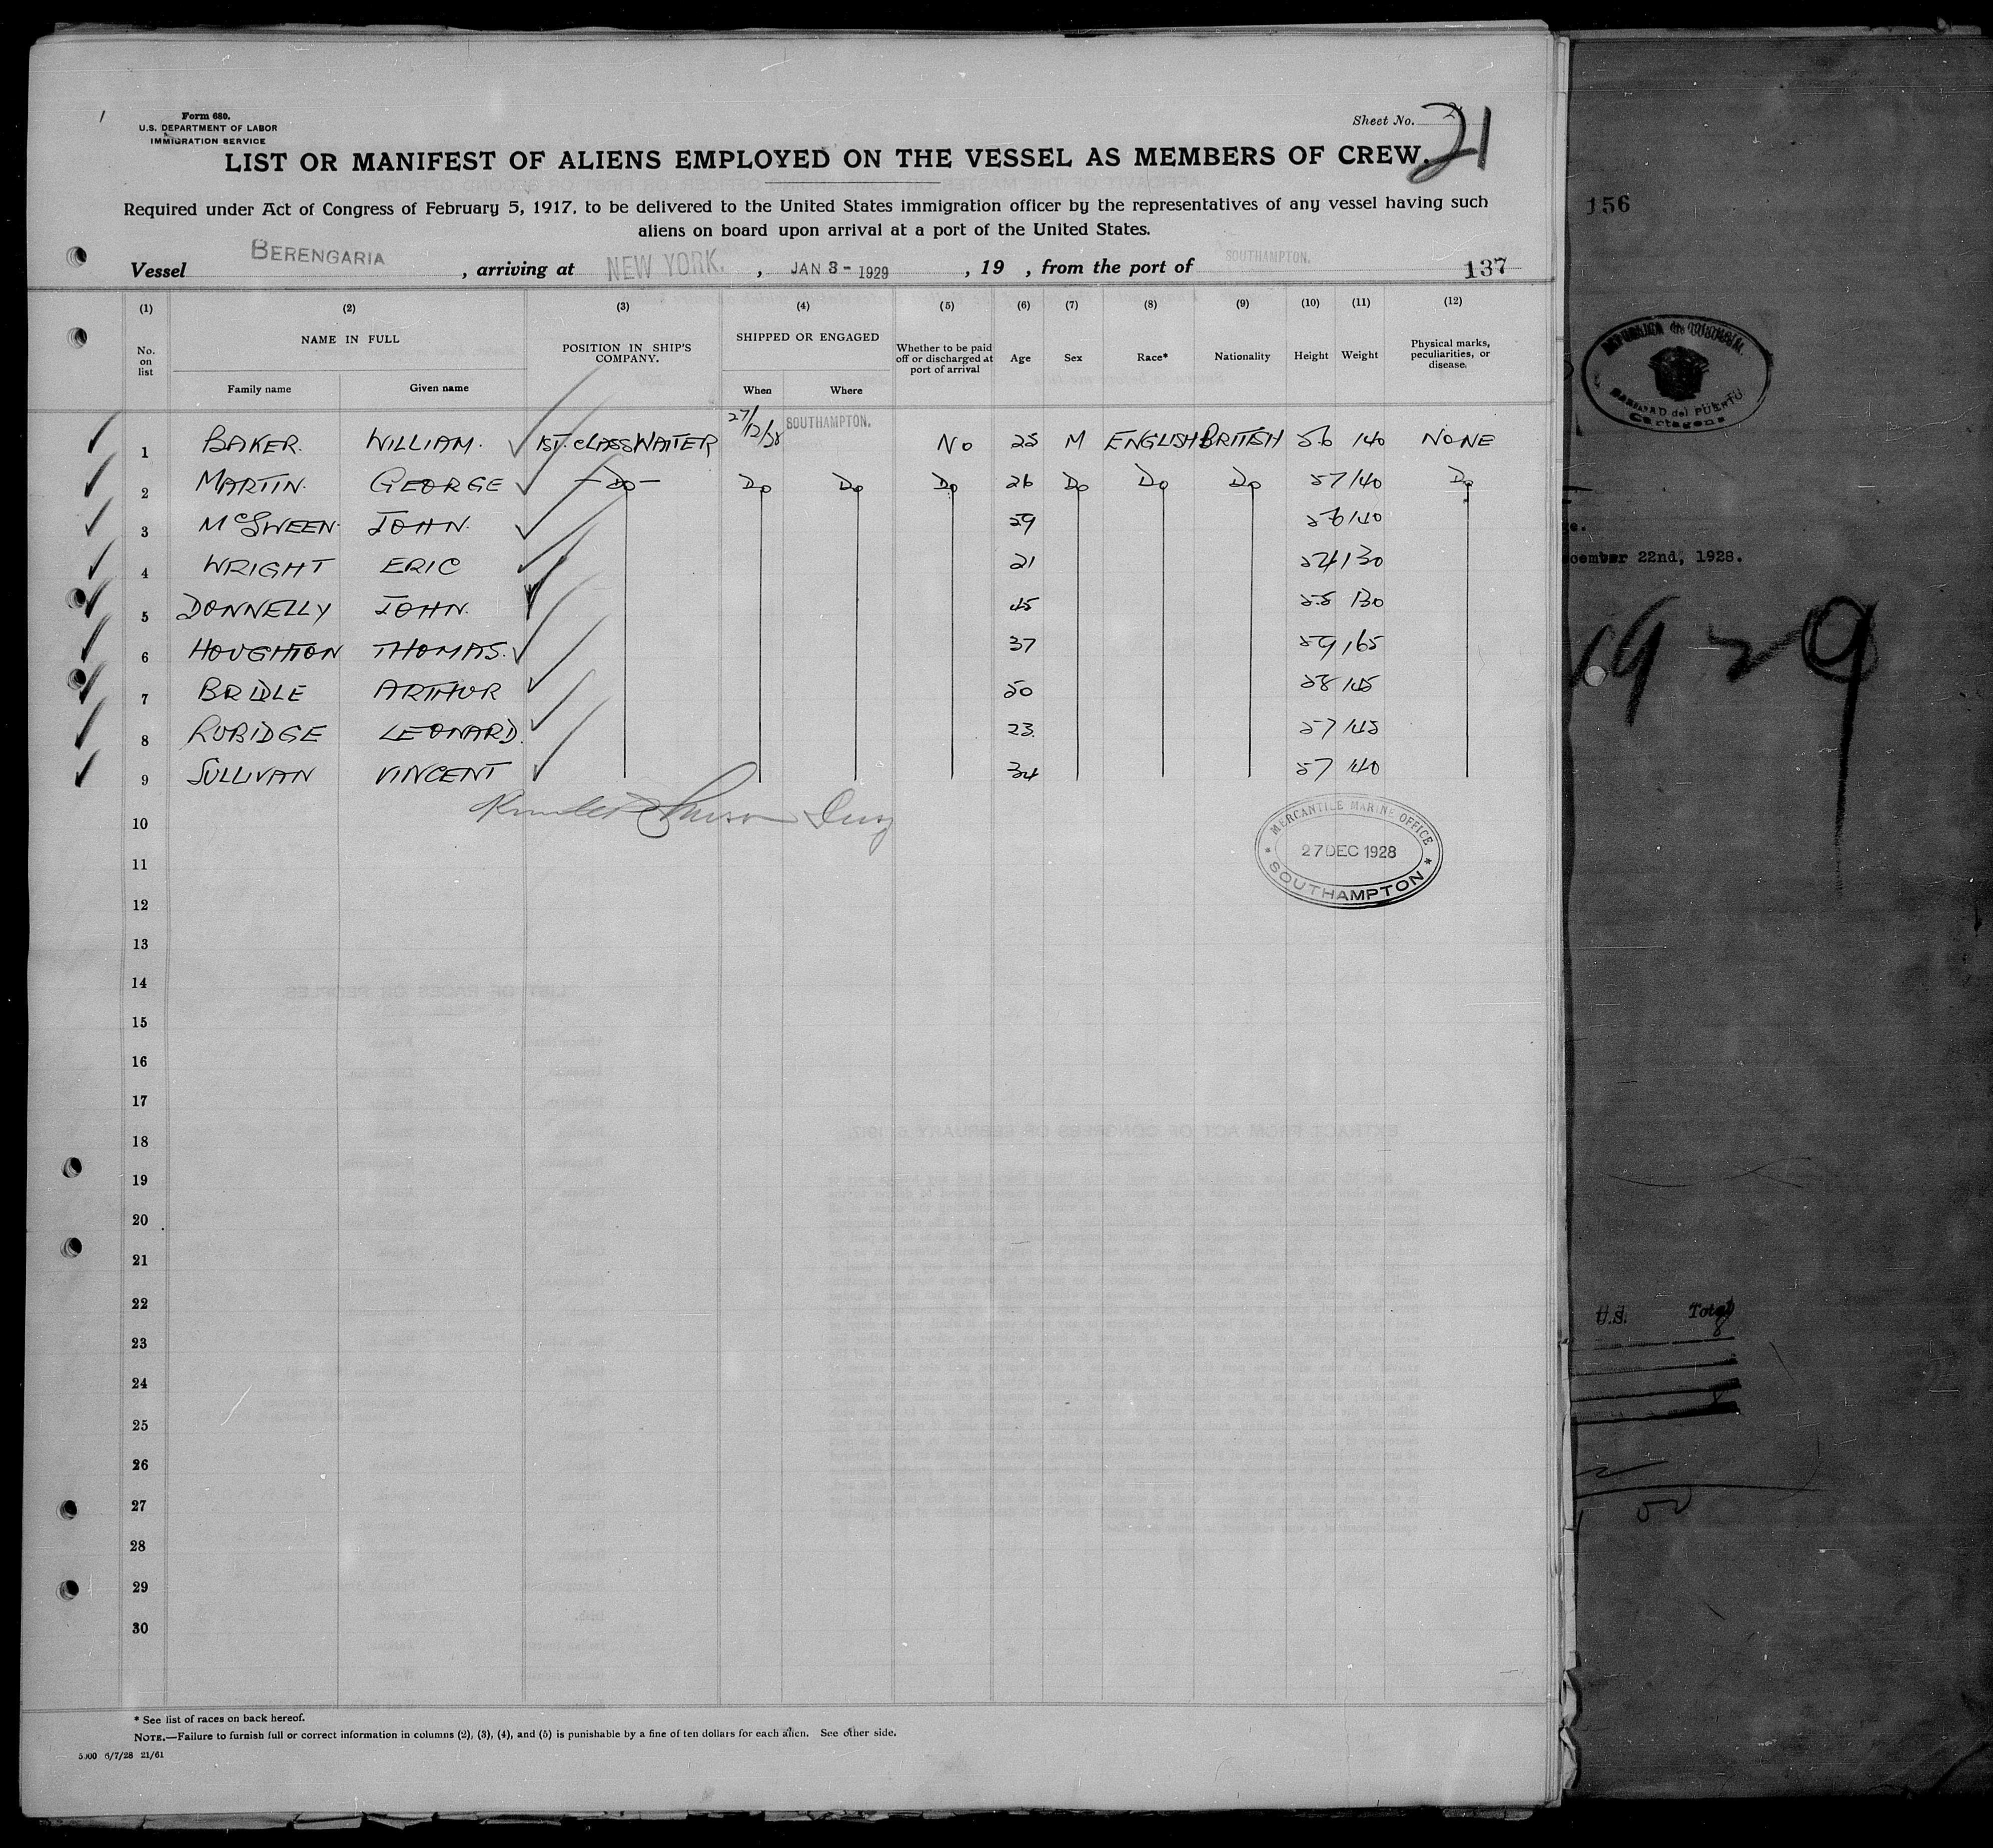 Form 680.
U.S. DEPARTMENT OF LABOR
IMMIGRATION SERVICE
Sheet No. 21
LIST OR MANIFEST OF ALIENS EMPLOYED ON THE VESSEL AS MEMBERS OF CREW.
Required under Act of Congress of February 5, 1917, to be delivered to the United States immigration officer by the representatives of any vessel having such
aliens on board upon arrival at a port of the United States.
Vessel BERENGARIA, arriving at NEW YORK., JAN 3 - 1929, 19 , from the port of SOUTHAMPTON. 137
(1) (2) (3) (4) (5) (6) (7) (8) (9) (10) (11) (12)
No. on list NAME IN FULL POSITION IN SHIP'S COMPANY. SHIPPED OR ENGAGED Whether to be paid off or discharged at port of arrival Age Sex Race* Nationality Height Weight Physical marks, peculiarities, or disease.
Family name Given name When Where
1 BAKER. WILLIAM. 1ST. CLASS WAITER 27/12/28 SOUTHAMPTON. NO 25 M ENGLISH BRITISH 5.6 140 NONE
2 MARTIN. GEORGE - Do - Do Do Do 26 Do Do Do 57 140 Do
3 McSWEEN. JOHN. 29 56 140
4 WRIGHT ERIC 21 54 130
5 DONNELLY JOHN. 45 5.5 130
6 HOUGHTON THOMAS. 37 59 165
7 BRIDLE ARTHUR 50 58 145
8 RUBIDGE LEONARD. 23. 57 145
9 SULLIVAN VINCENT 34 57 140
10
MERCANTILE MARINE OFFICE
27 DEC 1928
SOUTHAMPTON
11
12
13
14
15
16
17
18
19
20
21
22
23
24
25
26
27
28
29
30
* See list of races on back hereof.
NOTE.—Failure to furnish full or correct information in columns (2), (3), (4), and (5) is punishable by a fine of ten dollars for each alien. See other side.
5000 6/7/28 21/61
156
Cartagena
22nd, 1928.
1929
U.S. Total
8